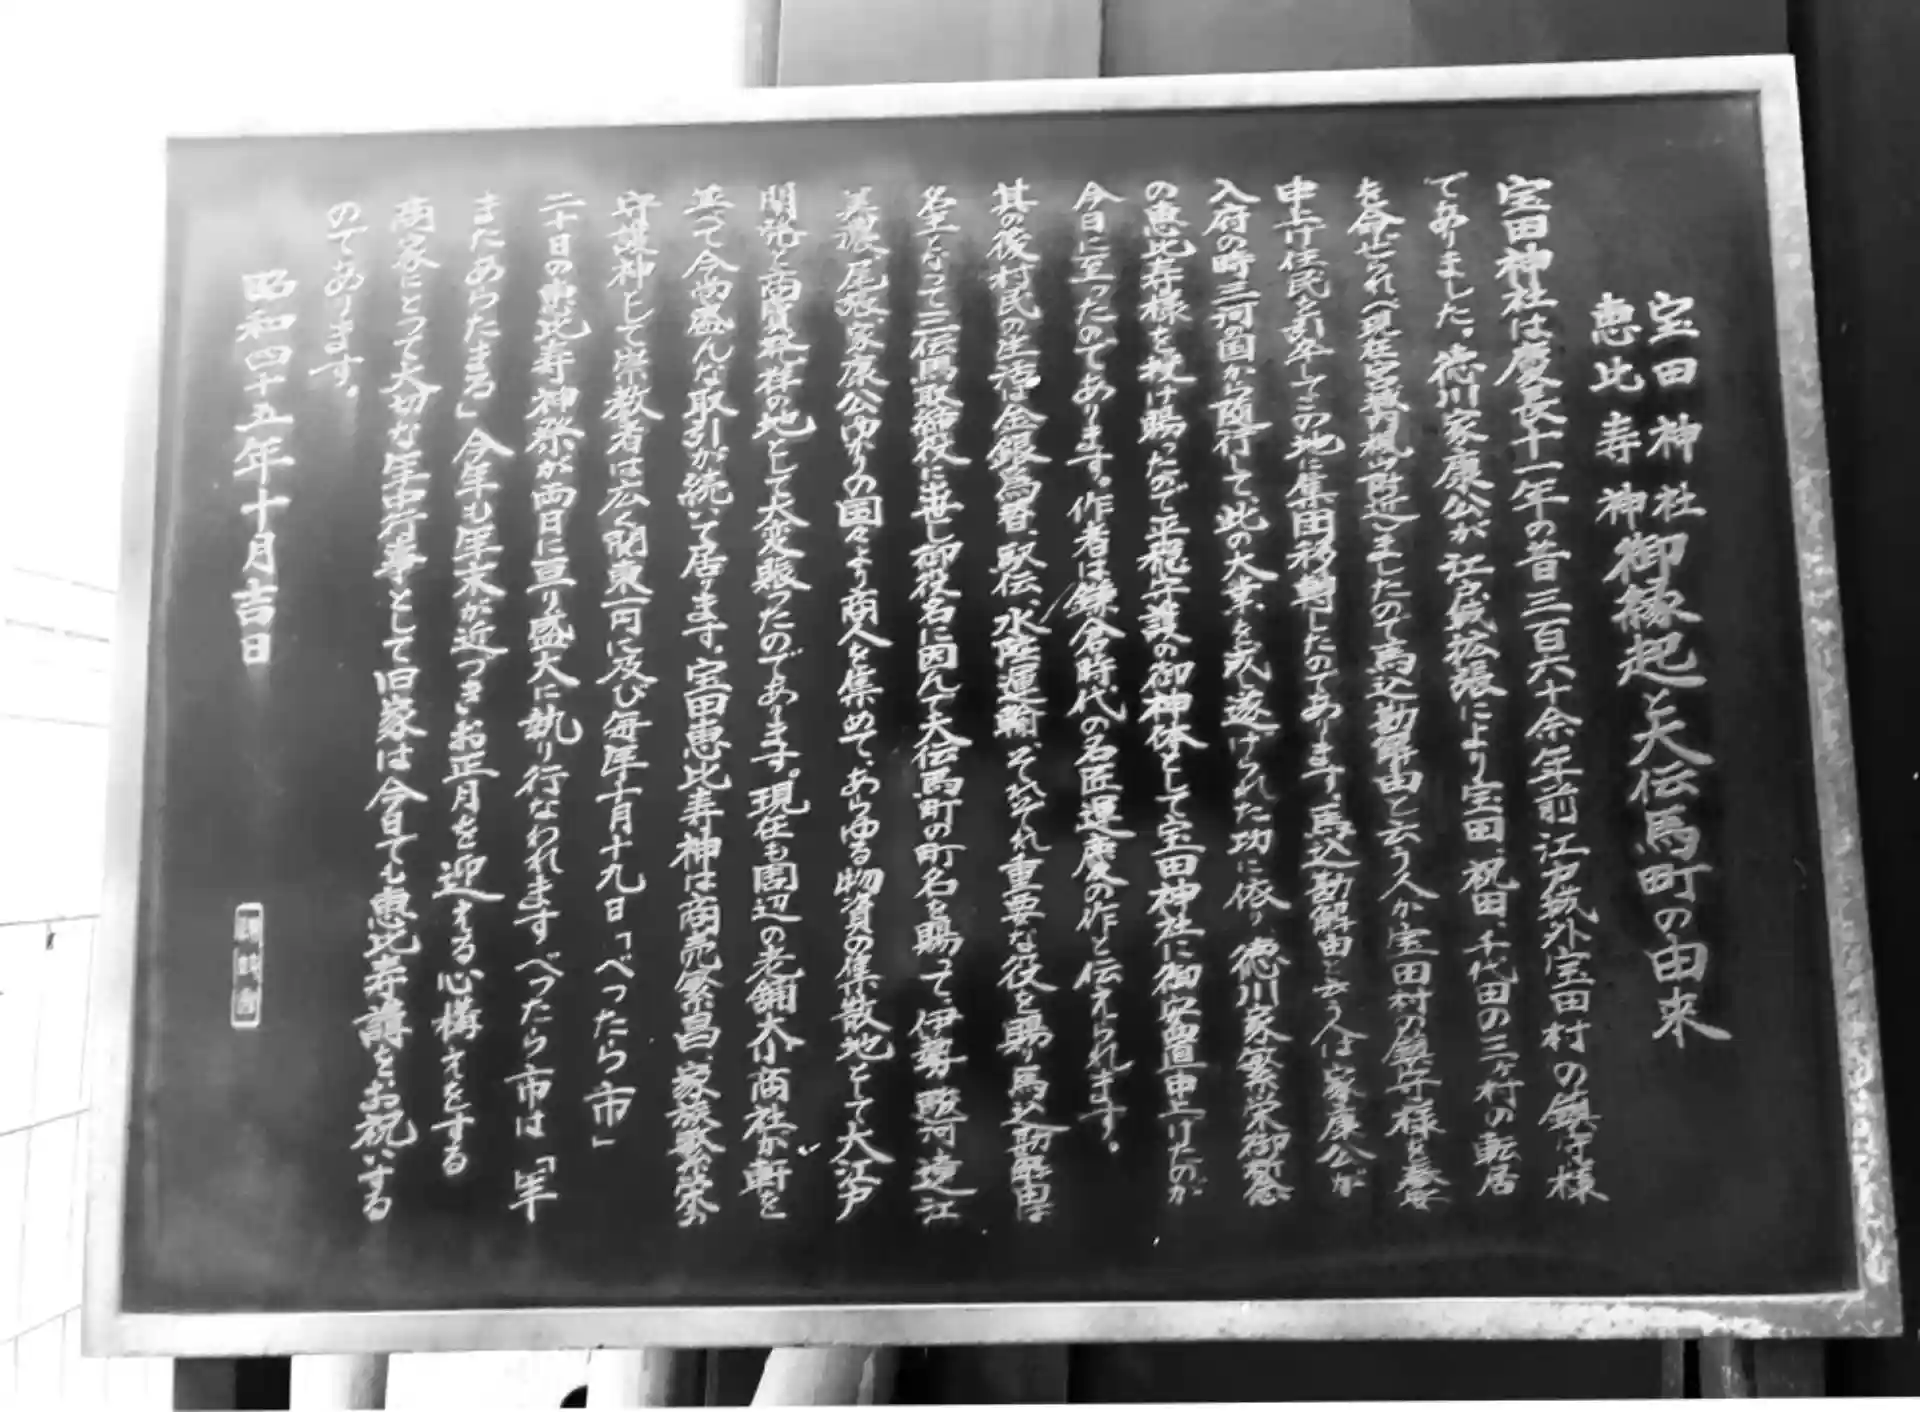 宝田神社
恵比寿神
御縁起と大伝馬町の由来
宝田神社は慶長十一年の昔三百六十余年前江戸城外宝田村の鎮守様
でありました。徳川家康公が江戸城拡張により宝田、祝田、千代田の三ヶ村の転居
を命ぜられ（現在宮城内楓山附近）ましたので馬込勘解由と云う人が宝田村の鎮守様を奉安
申上げ住民を引率してこの地に集団移動したのであります。馬込勘解由と云う人は家康公が
入府の時三河の国から随行して、此の大業を成し遂げられた功に依り、徳川家繁栄御祈念
の恵比寿様を授け賜ったので平穏守護の御神体として宝田神社に御安置申上げたのが
今日に至ったのであります。作者は鎌倉時代の名匠運慶の作と伝えられます。
其の後村民の生活は金銀為替、駅伝、水陸運輸、それぞれ重要な役を賜り馬込勘解由は
名主となって三伝馬取締役に出世し御役名に因んで大伝馬町の町名を賜って、伊勢、駿河、遠江
美濃、尾張、家康公ゆかりの国々より商人を集めて、あらゆる物資の集散地として大江戸
開発と商賣発祥の地として大変賑ったのであります。現在も周辺の老舗大小商社が軒を
並べて今尚盛んな取引が続いて居ります。宝田恵比寿神は商売繁昌、家族繁栄の
守護神として崇教者は広く関東一円に及び毎年十月十九日「べったら市」
二十日の恵比寿神祭が両日に亘り盛大に執り行なわれますべったら市は「年
またあらたまる」今年も年末が近づきお正月を迎える心構えをする
商家にとって大切な年中行事として旧家は今日でも恵比寿講をお祝いする
のであります。
昭和四十五年十月吉日